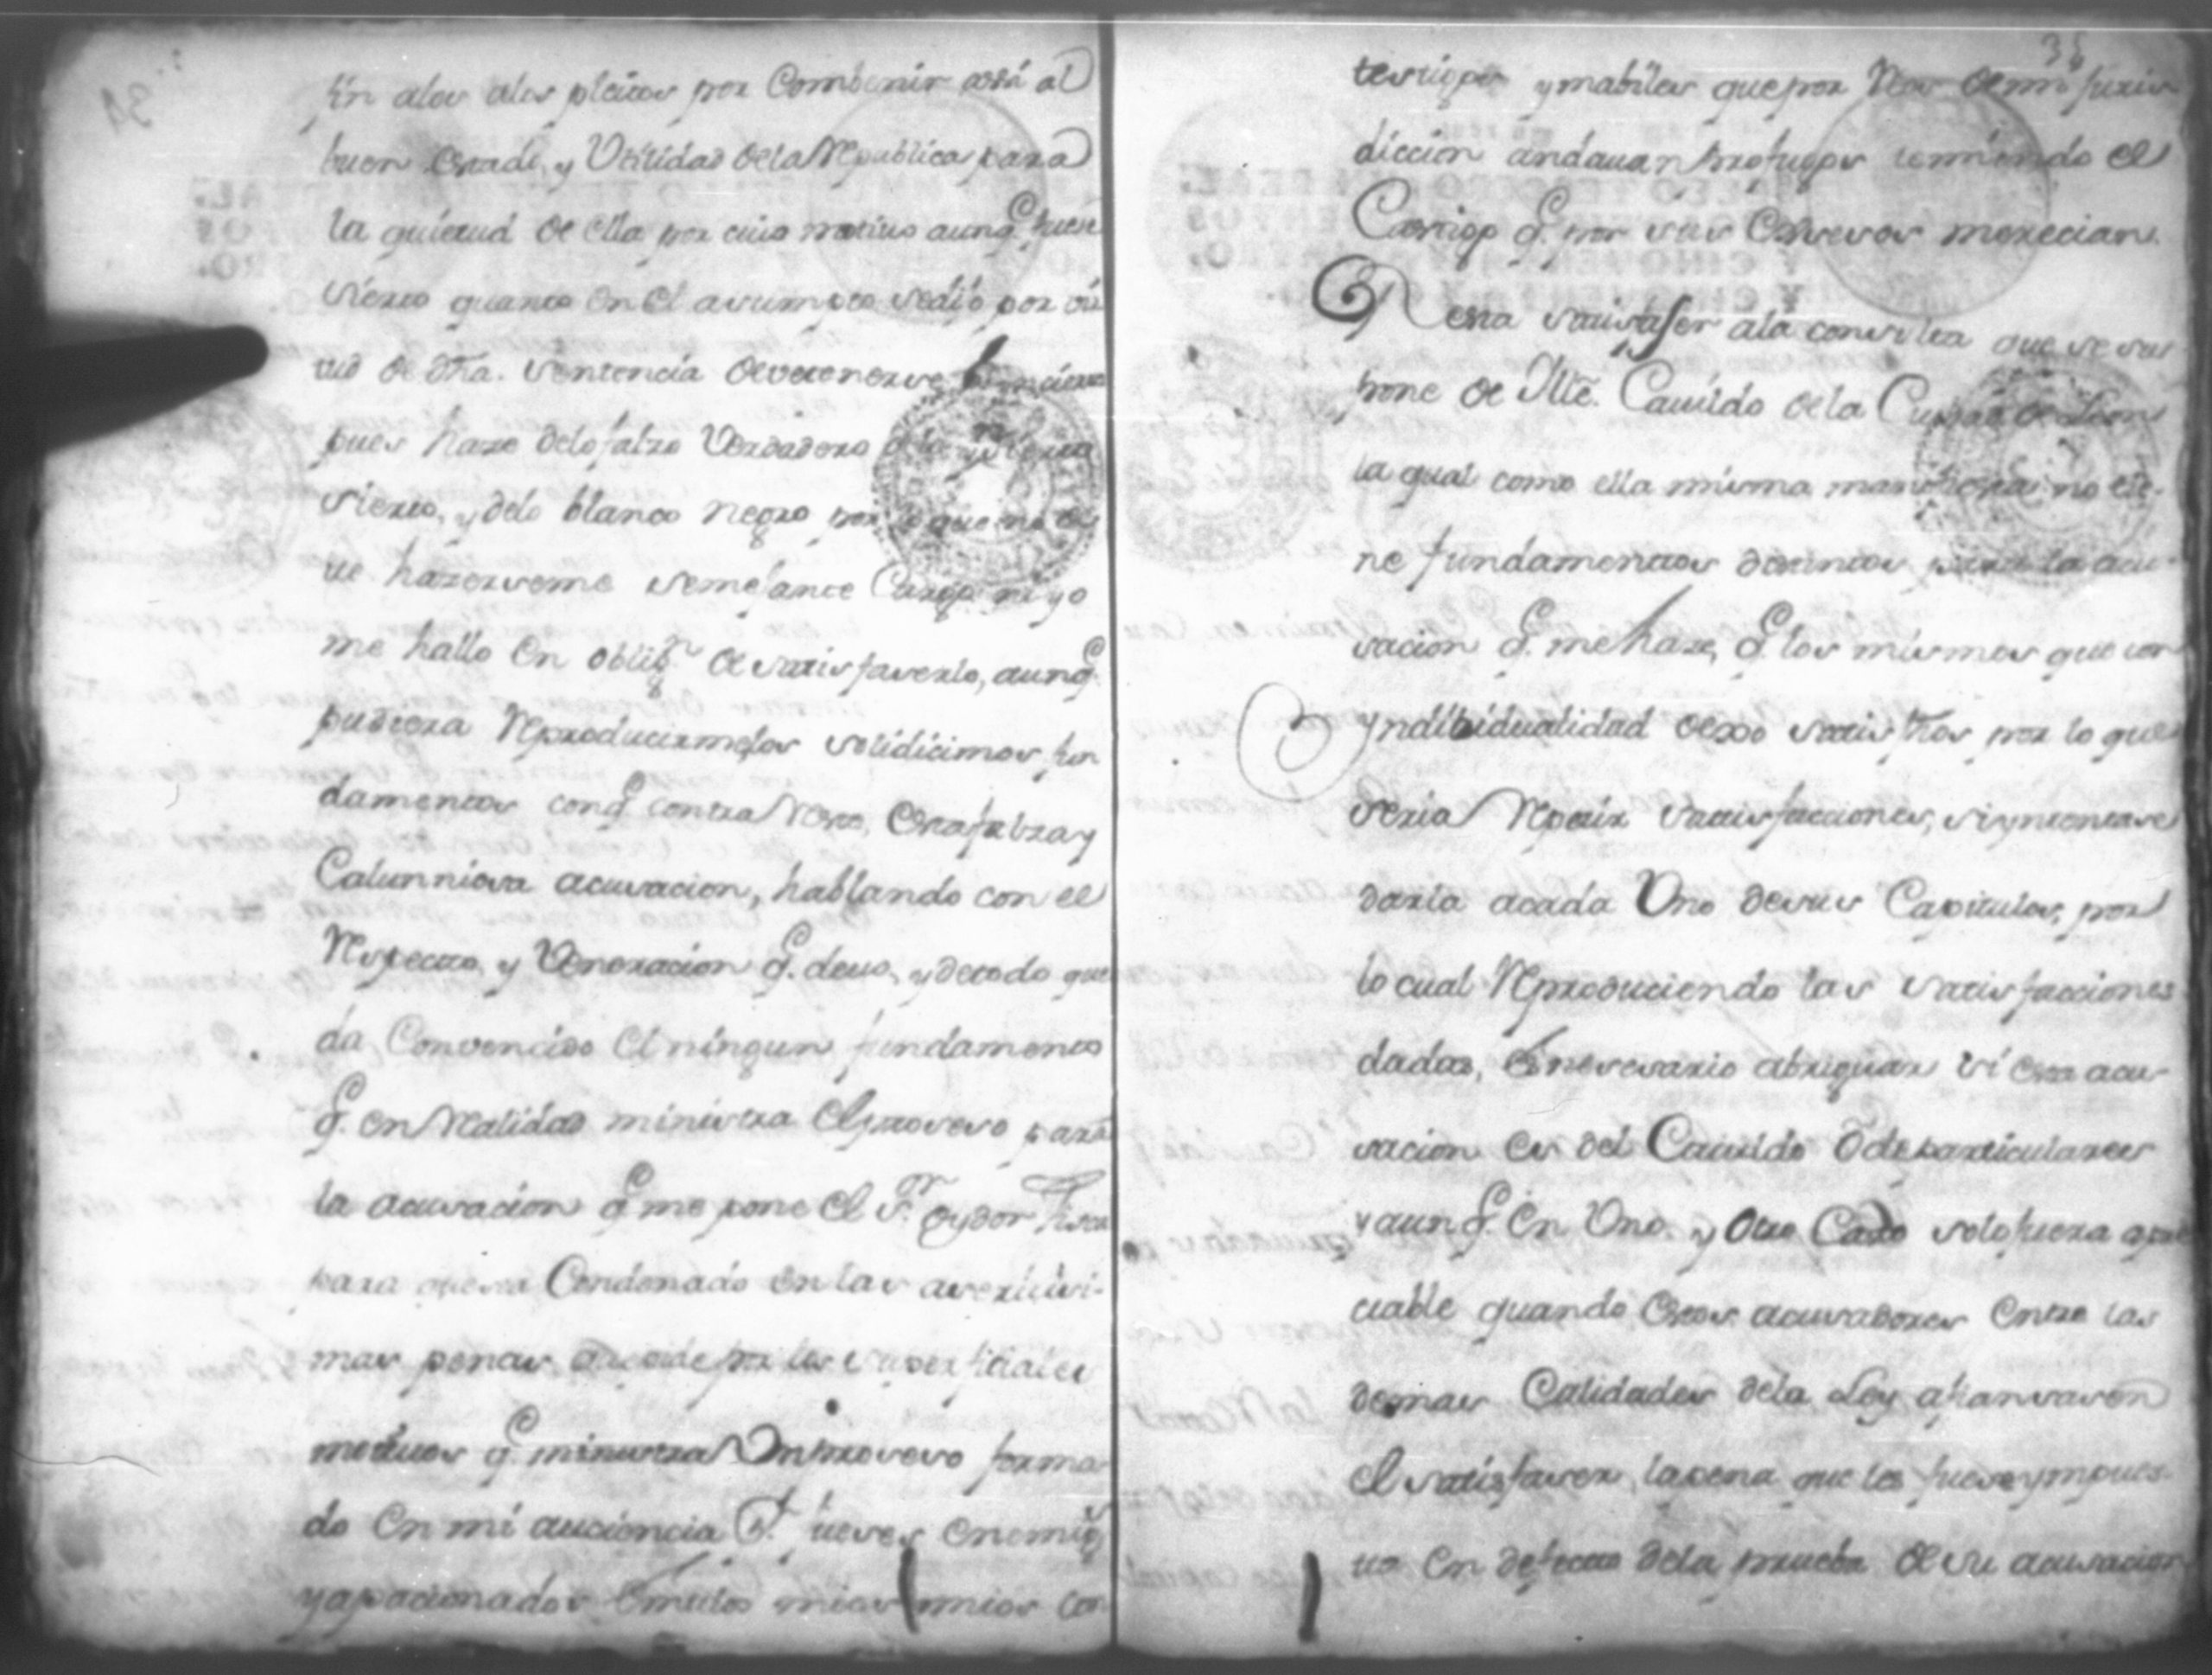 fin alos alos pleitos por Combenir assi al
buen estado, y Utilidad de la Republica para
la quietud de ella por cuio motivo aunq. fuese
sierto quanto en el asumpto se dijo por vir
tud de dha. sentencia deve tenerse
pues haze delo falso Verdadero
sierto, y delo blanco negro por
ve hazerseme semejante Cargo ni yo
me hallo en oblig.n de satisfaserlo, aunq.
pudiera Reproducirmelos solidicimos fun
damentos conq. contra Resto, esta falsa y
Calunniosa acusacion, hablando con el
Respecto, y Veneracion q. devo, y de todo que
da Convencido el ningun fundamento
q. en Realidad ministra el proseso para
la acusacion q. me pone el S.r oydor fiscal
para que sea Condenado en las aserbisi-
mas penas que pide por los superficiales
motivos q. ministra Un proseso forma
do en mi auciencia P.r jueses enemig.s
y apacionados emulos mios con
34
35
testigos y mabiles que por Reos de mi juris
diccion andauan profugos temiendo el
Castigo q. por sus exsesos merecian.
Resta satisfaser ala consulta que se su
pone de Ille. Cavildo dela Ciudad de Leon
la qual como ella misma manifiesta no tie-
ne fundamentos distintos para la acu-
sacion q. me haze, q. los mismos que con
yndibidualidad dexo satisfhos por lo que
seria Repetir satisfacciones, si yntentase
darla acada Uno desus Capitulos, por
lo cual Reproduciendo las satisfacciones
dadas, es nesesario abriguar si esta acu-
sacion es del Cavildo ô de particulares
y aunq. en Uno y otro Caso solo fuera apre
ciable quando estos acusadores entre las
demas Calidades dela Ley afiansasen
el satisfaser la pena que les fuese ympues-
ta en defecto dela prueba de su acusacion